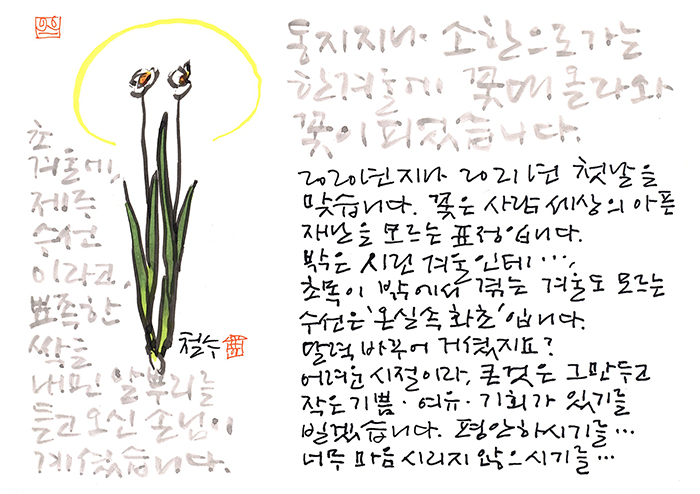 동지지나 소한으로가는
한겨울에 꽃대올라와
꽃이피었습니다.
초
겨울에,
제주
수선
이라고,
뾰족한
싹을
내민 알뿌리를
들고오신 손님이
계셨습니다.
철수
2020년지나 2021년 첫날을
맞습니다. 꽃은 사람세상의 아픈
재난을 모르는 표정입니다.
밖은 시린 겨울인데…,
초목이 밖에서 겪는 겨울도 모르는
수선은 '온실속 화초'입니다.
달력 바꾸어 거셨지요?
어려운시절이라, 큰것은 그만두고
작은기쁨·여유·기회가 있기를
빌겠습니다. 평안하시기를…
너무 마음 시리지 않으시기를…